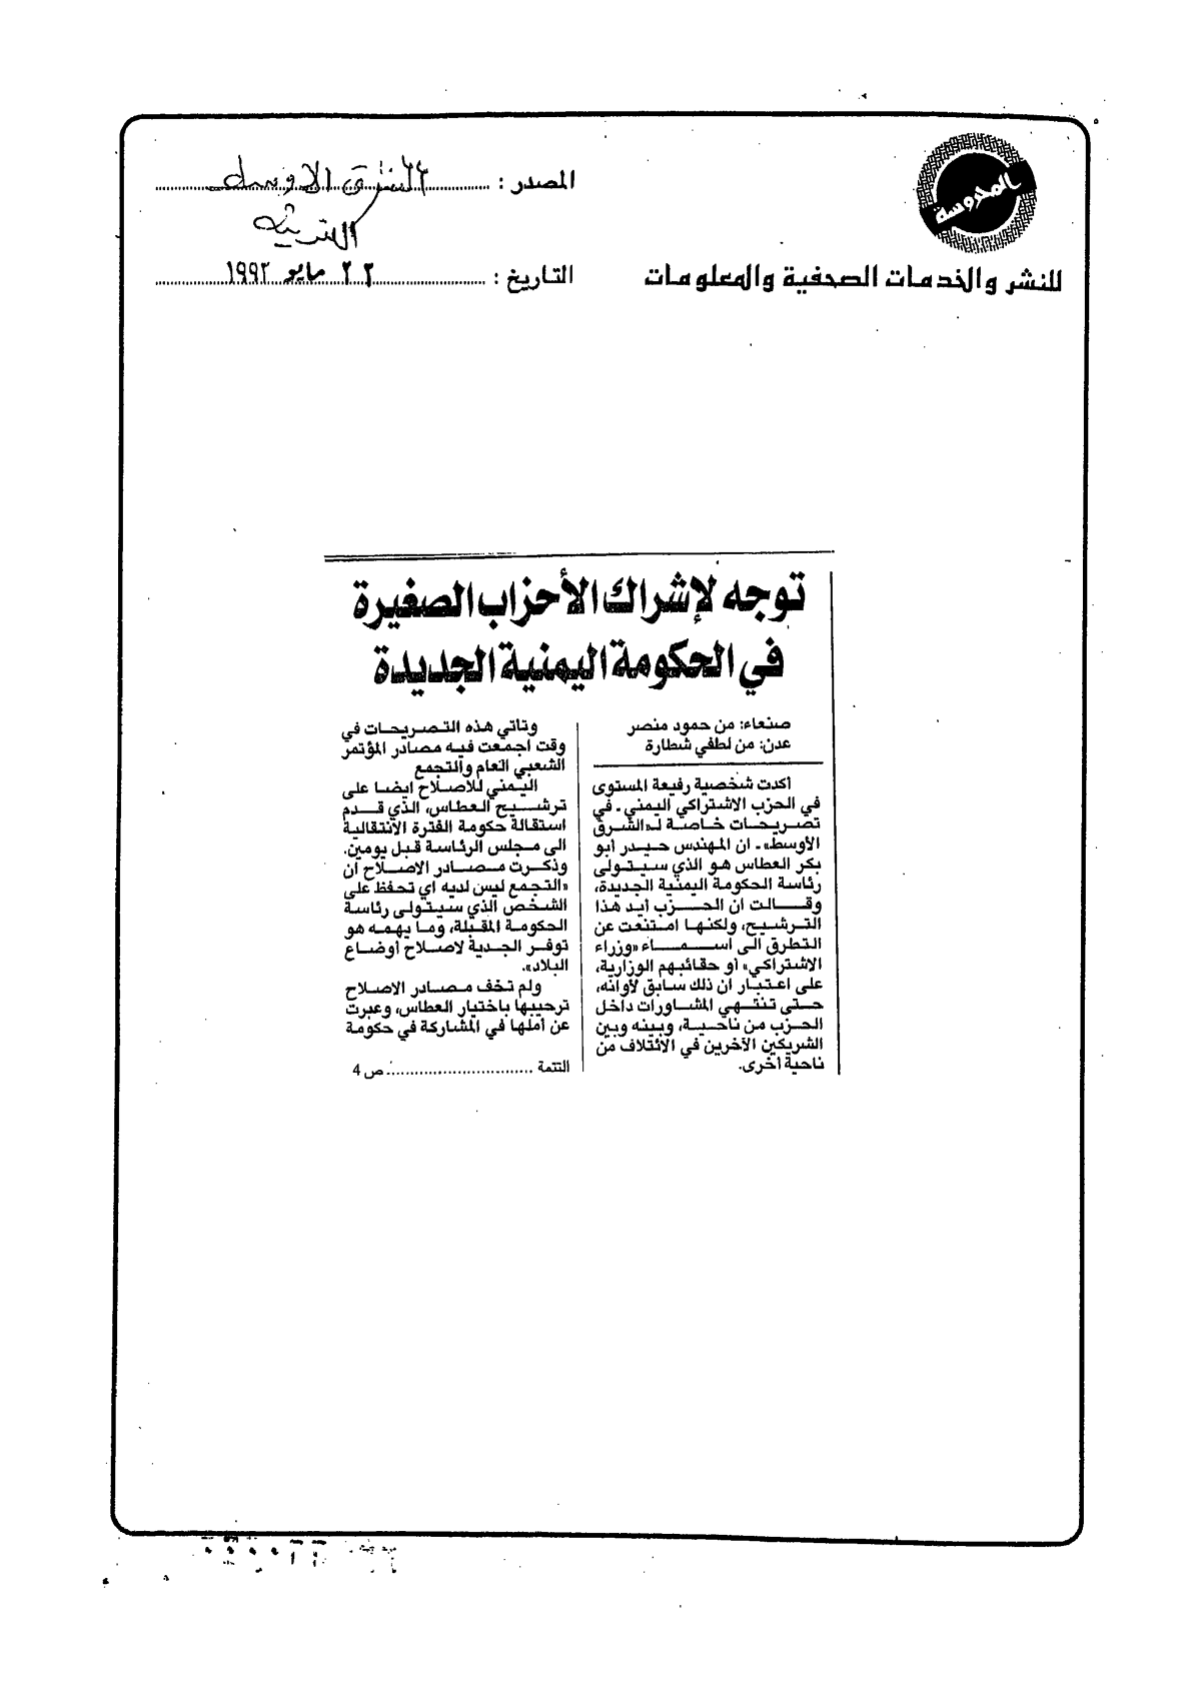 المحروسة
للنشر والخدمات الصحفية والمعلومات
المصدر : الشرق الاوسط
التاريخ : ٢٢ مايو ١٩٩٣
توجه لإشراك الأحزاب الصغيرة
في الحكومة اليمنية الجديدة
صنعاء: من حمود منصر
عدن: من لطفي شطارة
اكدت شخصية رفيعة المستوى
في الحزب الاشتراكي اليمني - في
تصريحات خاصة لـ«الشرق
الأوسط» - ان المهندس حيدر أبو
بكر العطاس هو الذي سيتولى
رئاسة الحكومة اليمنية الجديدة،
وقالت ان الحزب أيد هذا
الترشيح، ولكنها امتنعت عن
التطرق الى اسماء «وزراء
الاشتراكي» أو حقائبهم الوزارية،
على اعتبار ان ذلك سابق لأوانه،
حتى تنتهي المشاورات داخل
الحزب من ناحية، وبينه وبين
الشريكين الآخرين في الائتلاف من
ناحية أخرى.
وتأتي هذه التصريحات في
وقت اجمعت فيه مصادر المؤتمر
الشعبي العام والتجمع
اليمني للاصلاح ايضا على
ترشيح العطاس، الذي قدم
استقالة حكومة الفترة الانتقالية
الى مجلس الرئاسة قبل يومين.
وذكرت مصادر الاصلاح ان
«التجمع ليس لديه اي تحفظ على
الشخص الذي سيتولى رئاسة
الحكومة المقبلة، وما يهمه هو
توفر الجدية لاصلاح أوضاع
البلاد».
ولم تخف مصادر الاصلاح
ترحيبها باختيار العطاس، وعبرت
عن أملها في المشاركة في حكومة
التتمة ............................ ص 4